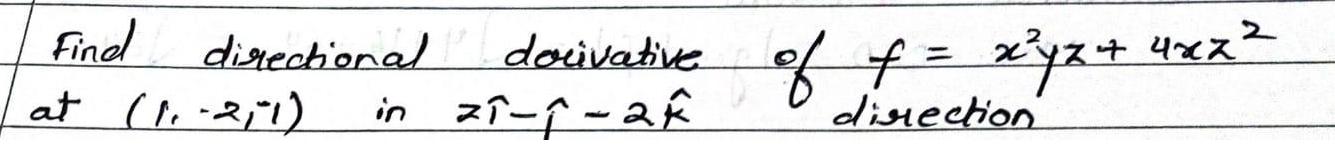 Find directional derivative of f = x²yz + 4xz²
at (1, -2, -1) in 2î - ĵ - 2k̂ direction